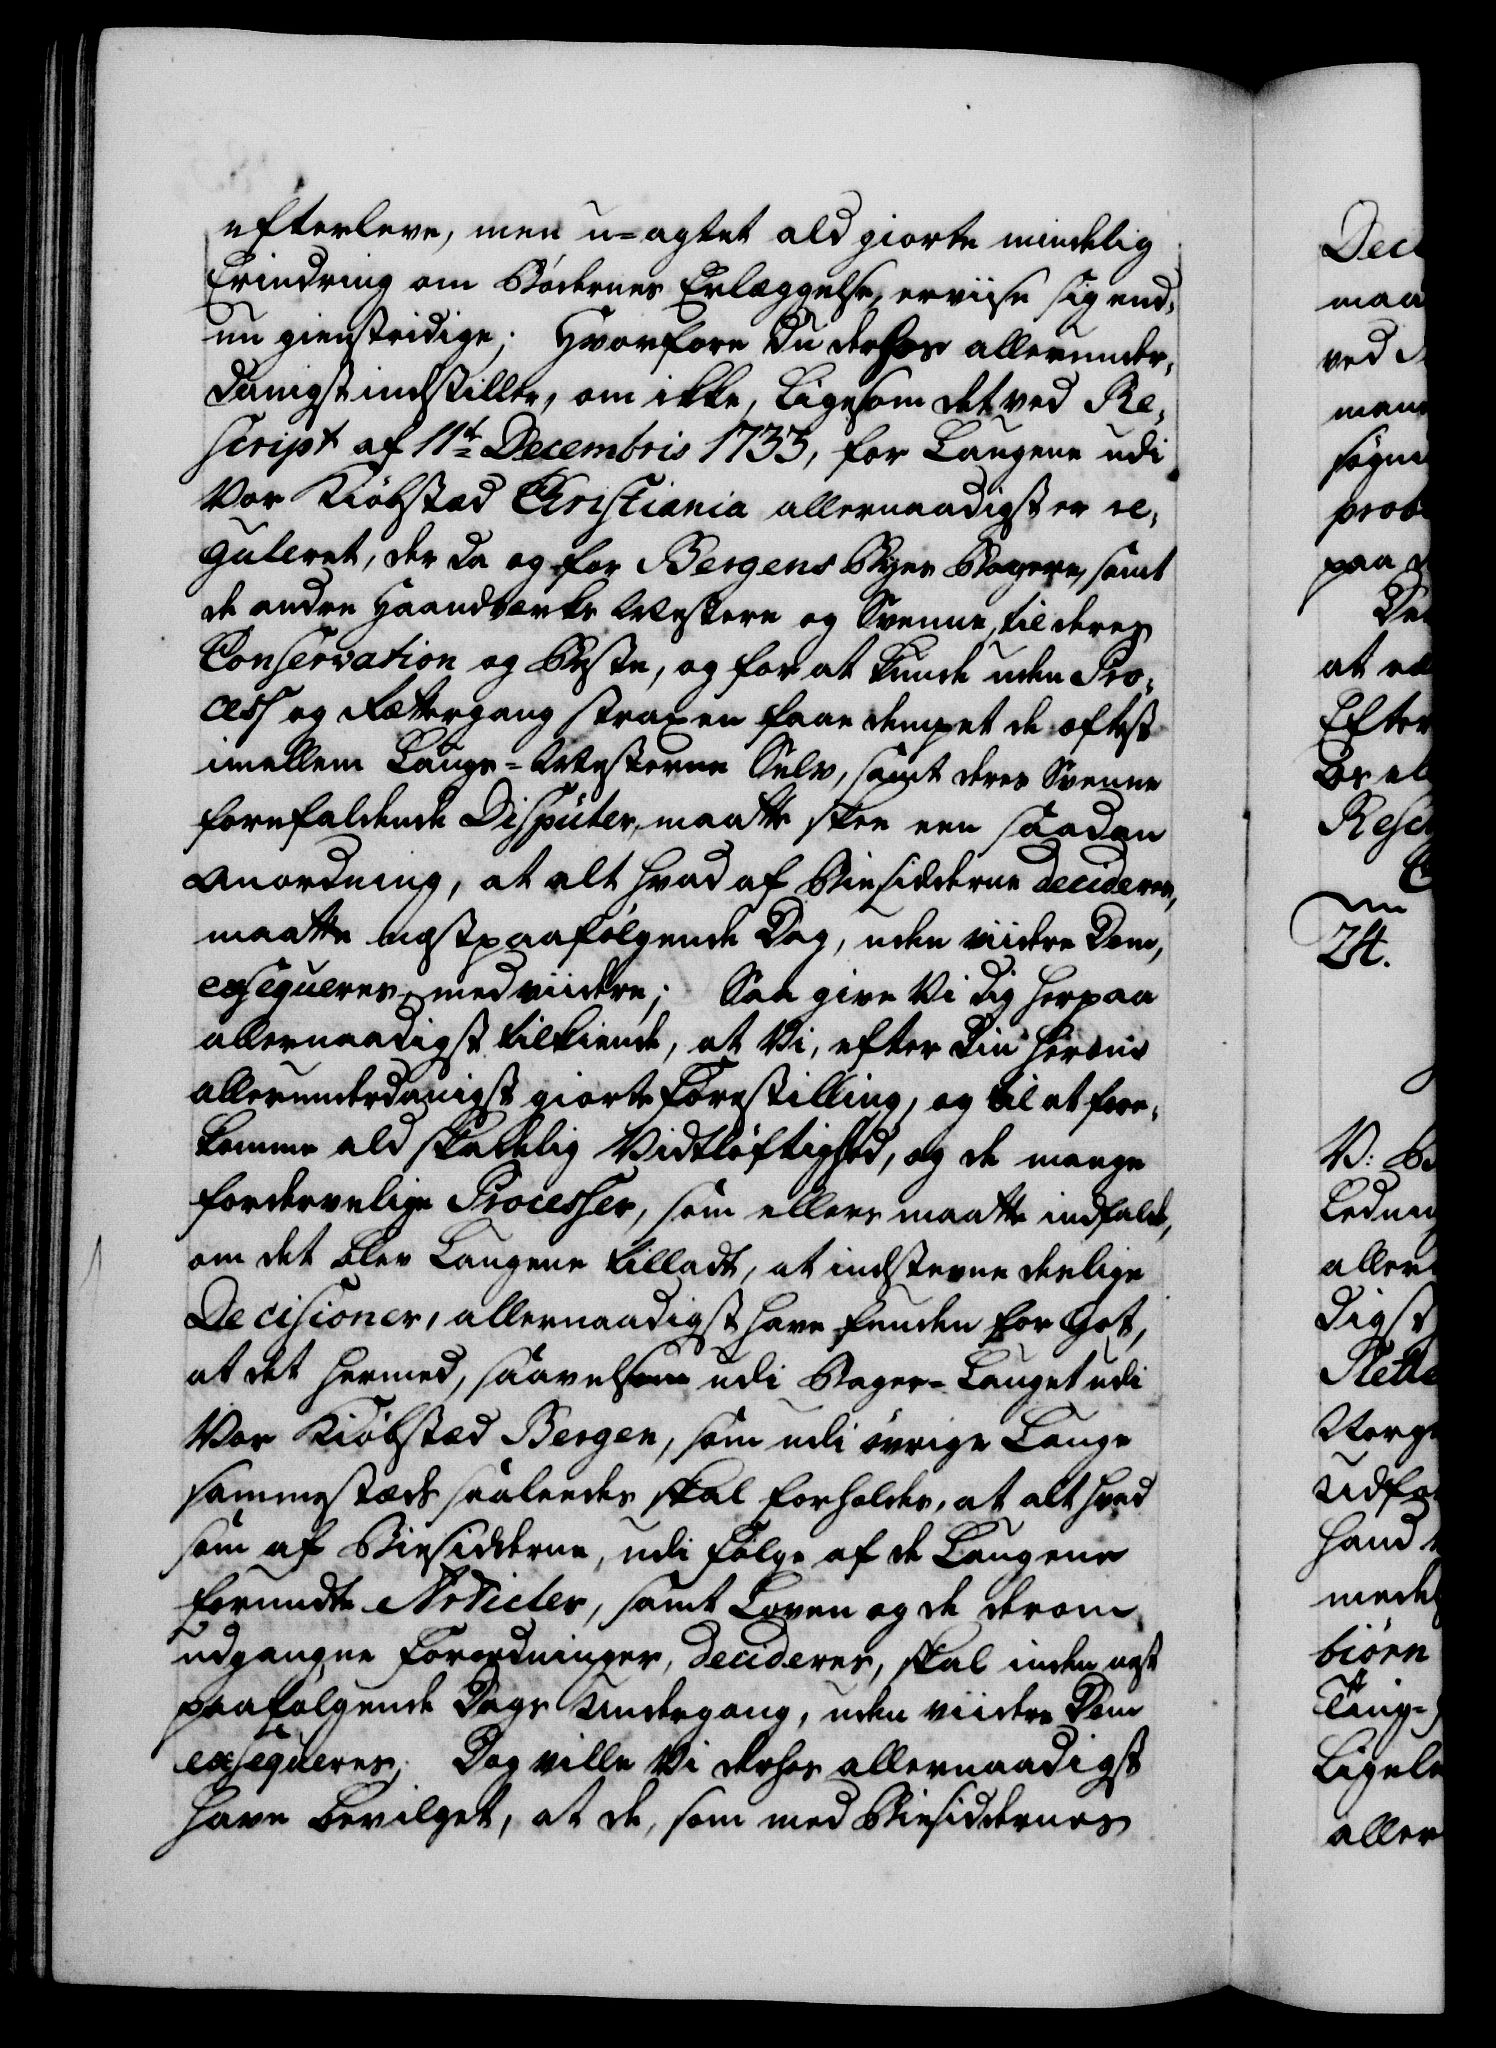 efterleve, men u-agtet ald giorte mindelig
Erindring om Bødernes Erlæggelse, erviise sig end-
nu gienstridige; Hvorfore Du derhos allerunder-
danigst indstiller, om ikke, ligesom det ved Re-
script af 11te Decembris 1733, for Laugene udi
Vor Kiøbstæd Christiania allernaadigst er re-
guleret, der da og for Bergens Byes Bagere, samt
de andre Haandværks Mestere og Svenne, til deres
Conservation og Beste, og for at kunde uden Pro-
cess og Rettergang straxen faae dempet de oftest
imellem Laugs-Mesterne Selv, samt deres Svenne
forefaldende Disputer, maatte skee een saadan
Anordning, at alt hvad af Biesidderne decideres,
maatte nestpaafølgende Dag, uden viidere Dom,
exseqveres, med viidere; Saa give Vi dig herpaa
allernaadigst tilkiende, at Vi, efter din herom
allerunderdanigst giorte Forestilling, og til at fore-
komme ald skadelig Vidtløftighed, og de mange
fordervelige Processer, som ellers maatte indfalde,
om det blev Laugene tilladt, at indstevne deslige
Decisioner, allernaadigst have funden for Got,
at det hermed, saavelsom udi Bager-Lauget udi
Vor Kiøbstæd Bergen, som udi øvrige Lauge
sammestæds saaledes skal forholdes, at alt hvad
som af Biesidderne, udi følge af de Laugene
forundte Articler, samt Loven og de derom
udgangne Forordninger, decideres, skal inden nest
paafølgende Dags Undergang, uden viidere Dom
exseqveres. Dog ville Vi derhos allernaadigst
have bevilget, at de, som med Biesiddernes
Dec
maa
ved
man
søgn
prob
paa
De
at
Efter
Resc
24.
Ledn
aller
digst
Rette
Udfo
hand
med
biørn
Ting-
Ligele
aller